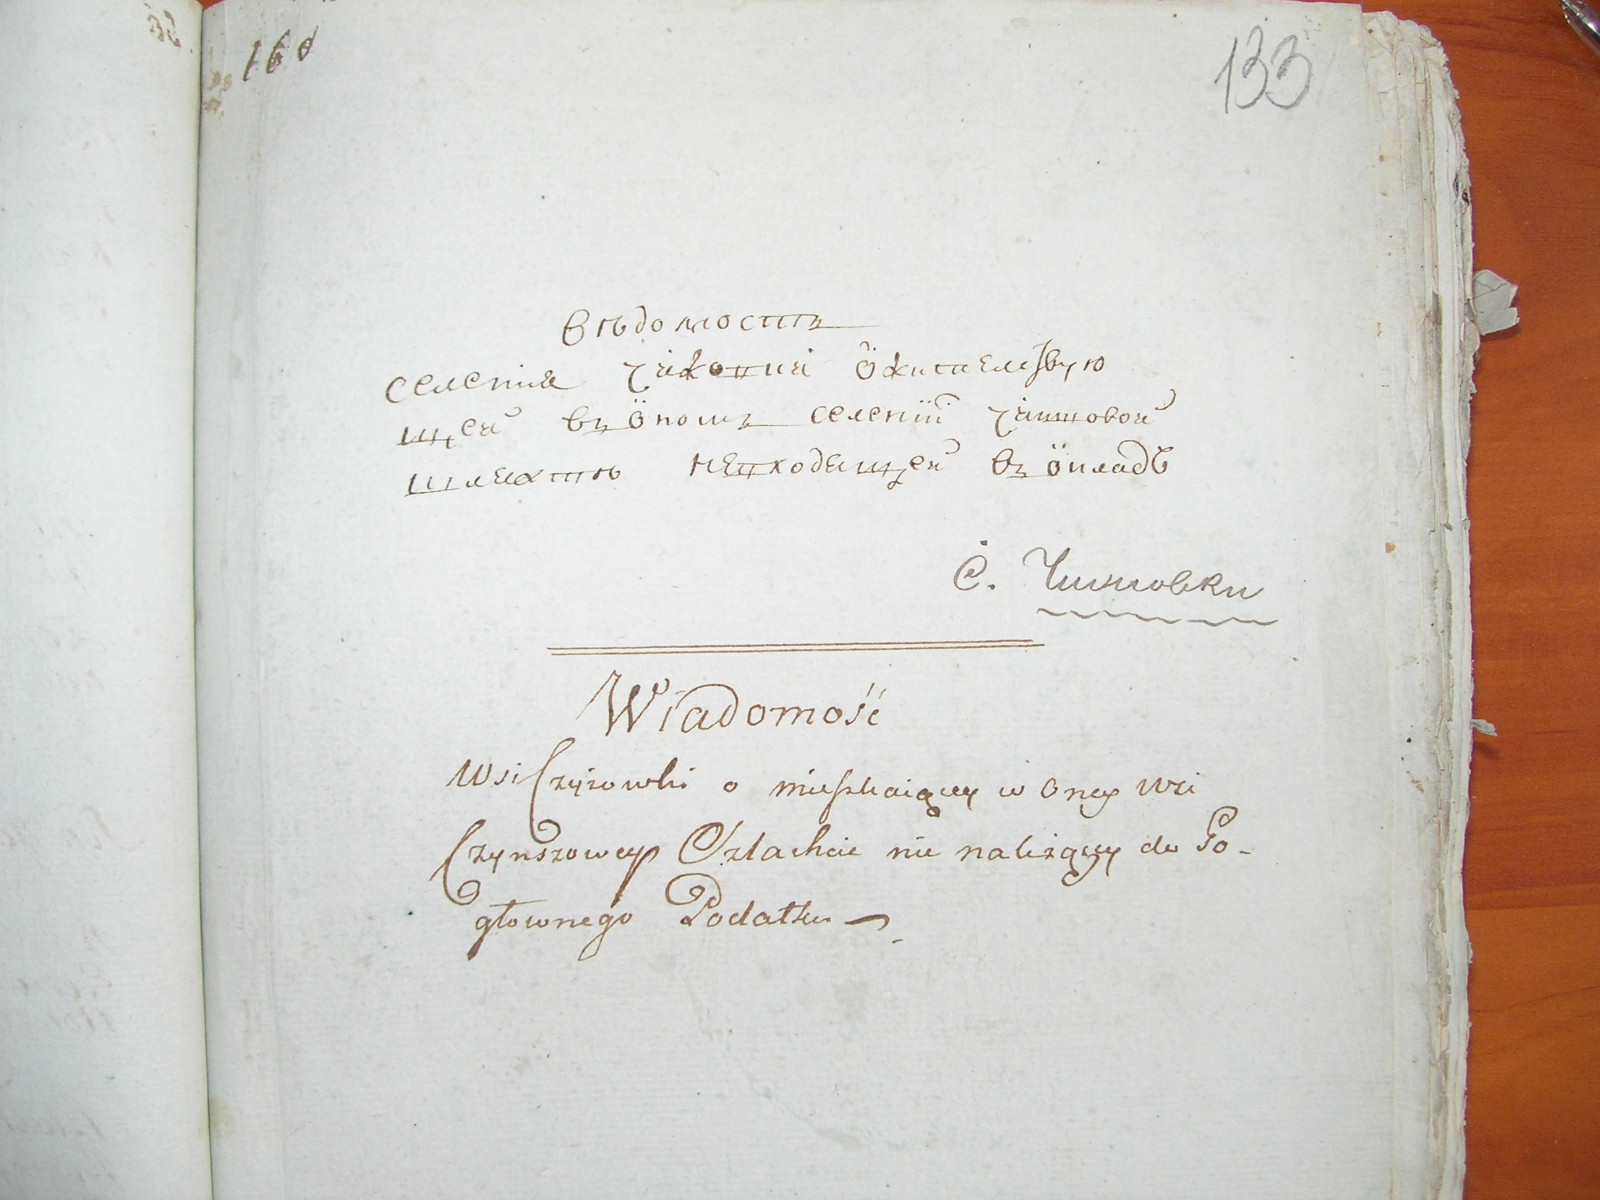 160
133
Вѣдомость
селения о жителствую
щей въ ономъ селении чиншовой
шляхтѣ неходящей въ окладъ
С. Чижовки
Wiadomość
Wsi Czyżowki o mieszkaiącey w oney Wsi
Czynszowey Szlachcie nie należącey do Po-
głownego Podatku